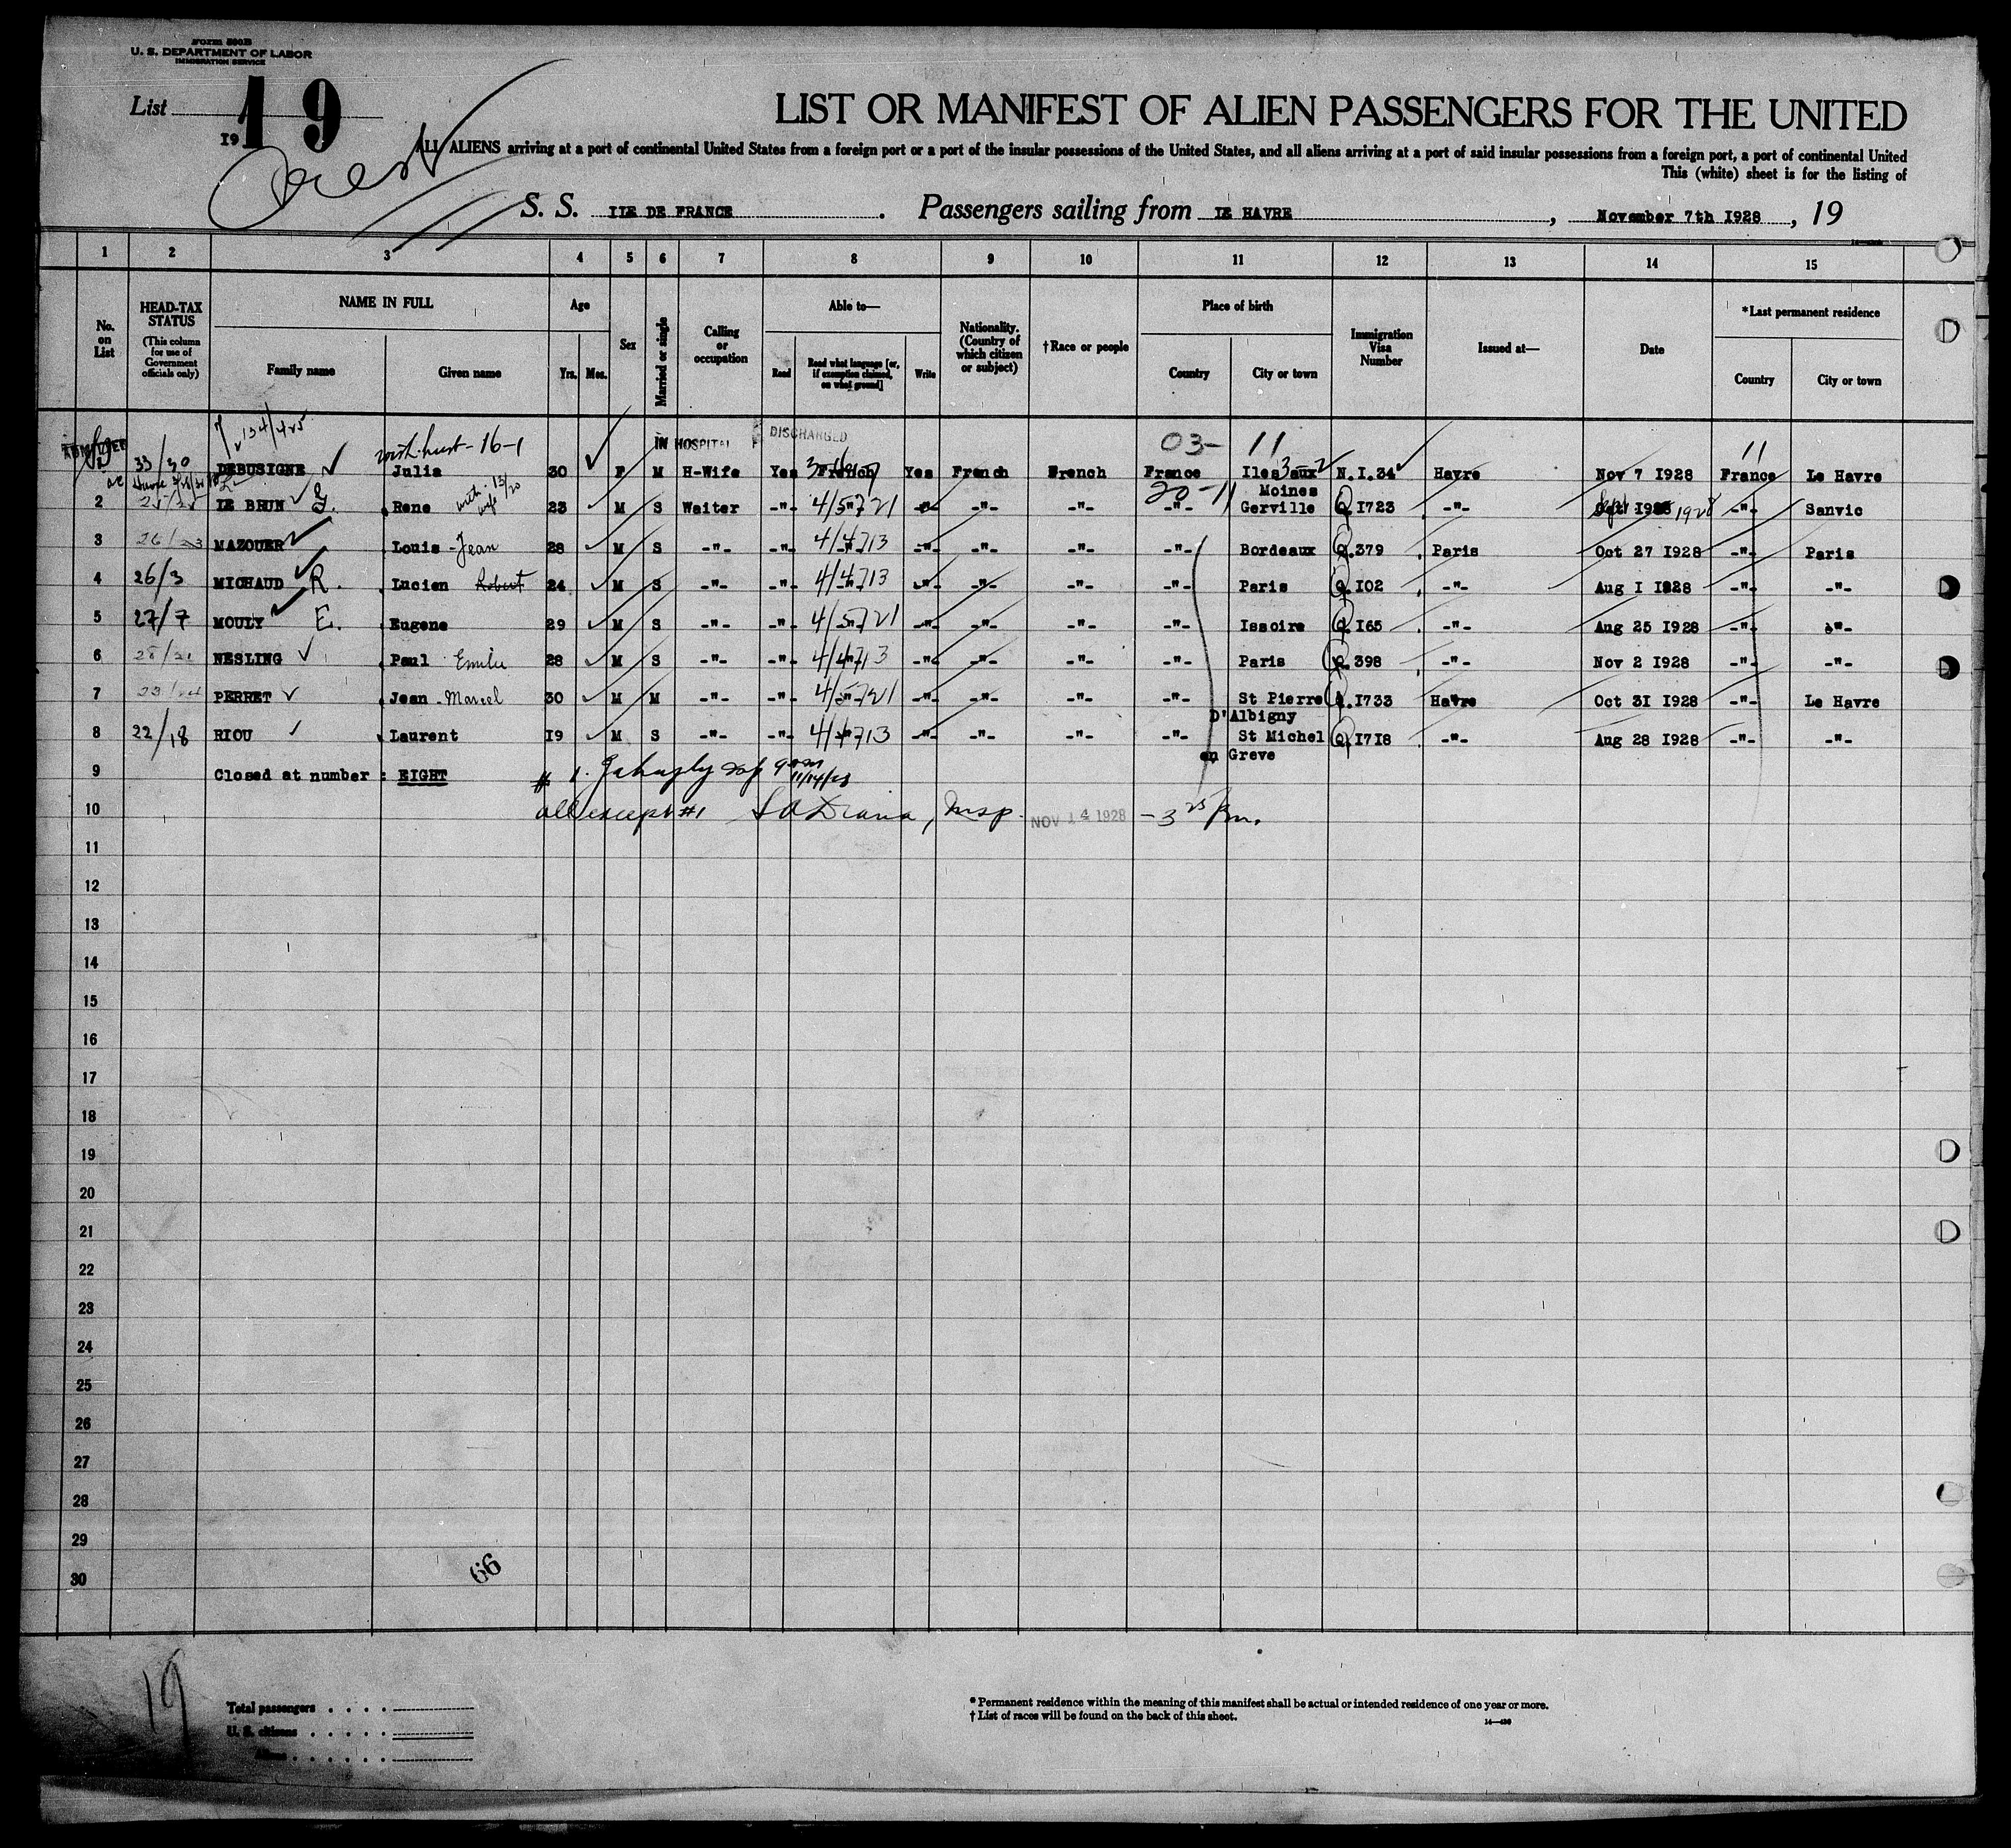 Form 500B
U. S. DEPARTMENT OF LABOR
IMMIGRATION SERVICE
List 19
19
LIST OR MANIFEST OF ALIEN PASSENGERS FOR THE UNITED
ALL ALIENS arriving at a port of continental United States from a foreign port or a port of the insular possessions of the United States, and all aliens arriving at a port of said insular possessions from a foreign port, a port of continental United
This (white) sheet is for the listing of
S. S. ILE DE FRANCE . Passengers sailing from LE HAVRE , November 7th 1928 , 19
1 2 3 4 5 6 7 8 9 10 11 12 13 14 15
No. on List
HEAD-TAX STATUS (This column for use of Government officials only)
NAME IN FULL
Family name Given name
Age
Yrs. Mos.
Sex
Married or single
Calling or occupation
Able to—
Read Read what language [or, if exemption claimed, on what ground] Write
Nationality. (Country of which citizen or subject)
†Race or people
Place of birth
Country City or town
Immigration Visa Number
Issued at—
Date
*Last permanent residence
Country City or town
16-1 IN HOSPITAL DISCHARGED 03- 11 11
33/30 DEBUSIGNE Julia 30 F M H-Wife Yes French Yes French French France Iles aux Moines N.I.34 Havre Nov 7 1928 France Le Havre
20-11
2 LE BRUN G. Rene with wife 23 M S Waiter -"- 4/5721 -"- -"- -"- -"- Gerville Q.1723 -"- Sept 1928 -"- Sanvic
3 26/23 MAZOUER Louis Jean 28 M S -"- -"- 4/4713 -"- -"- -"- -"- Bordeaux Q.379 Paris Oct 27 1928 -"- Paris
4 26/3 MICHAUD R. Lucien Robert 24 M S -"- -"- 4/4713 -"- -"- -"- -"- Paris Q.102 -"- Aug 1 1928 -"- -"-
5 27/7 MOULY E. Eugene 29 M S -"- -"- 4/5721 -"- -"- -"- -"- Issoire Q.165 -"- Aug 25 1928 -"- -"-
6 NESLING Paul Emile 28 M S -"- -"- 4/4713 -"- -"- -"- -"- Paris Q.398 -"- Nov 2 1928 -"- -"-
7 PERRET Jean Marcel 30 M M -"- -"- 4/5721 -"- -"- -"- -"- St Pierre D'Albigny Q.1733 Havre Oct 31 1928 -"- Le Havre
8 22/18 RIOU Laurent 19 M S -"- -"- 4/4713 -"- -"- -"- -"- St Michel en Greve Q.1718 -"- Aug 28 1928 -"- -"-
9 Closed at number : EIGHT # 1. 11/14/28
10 all except #1 Insp. NOV 14 1928 - 3 25 Pm.
11
12
13
14
15
16
17
18
19
20
21
22
23
24
25
26
27
28
29
30
66
19
Total passengers
U. S. citizens
Aliens
* Permanent residence within the meaning of this manifest shall be actual or intended residence of one year or more.
† List of races will be found on the back of this sheet.